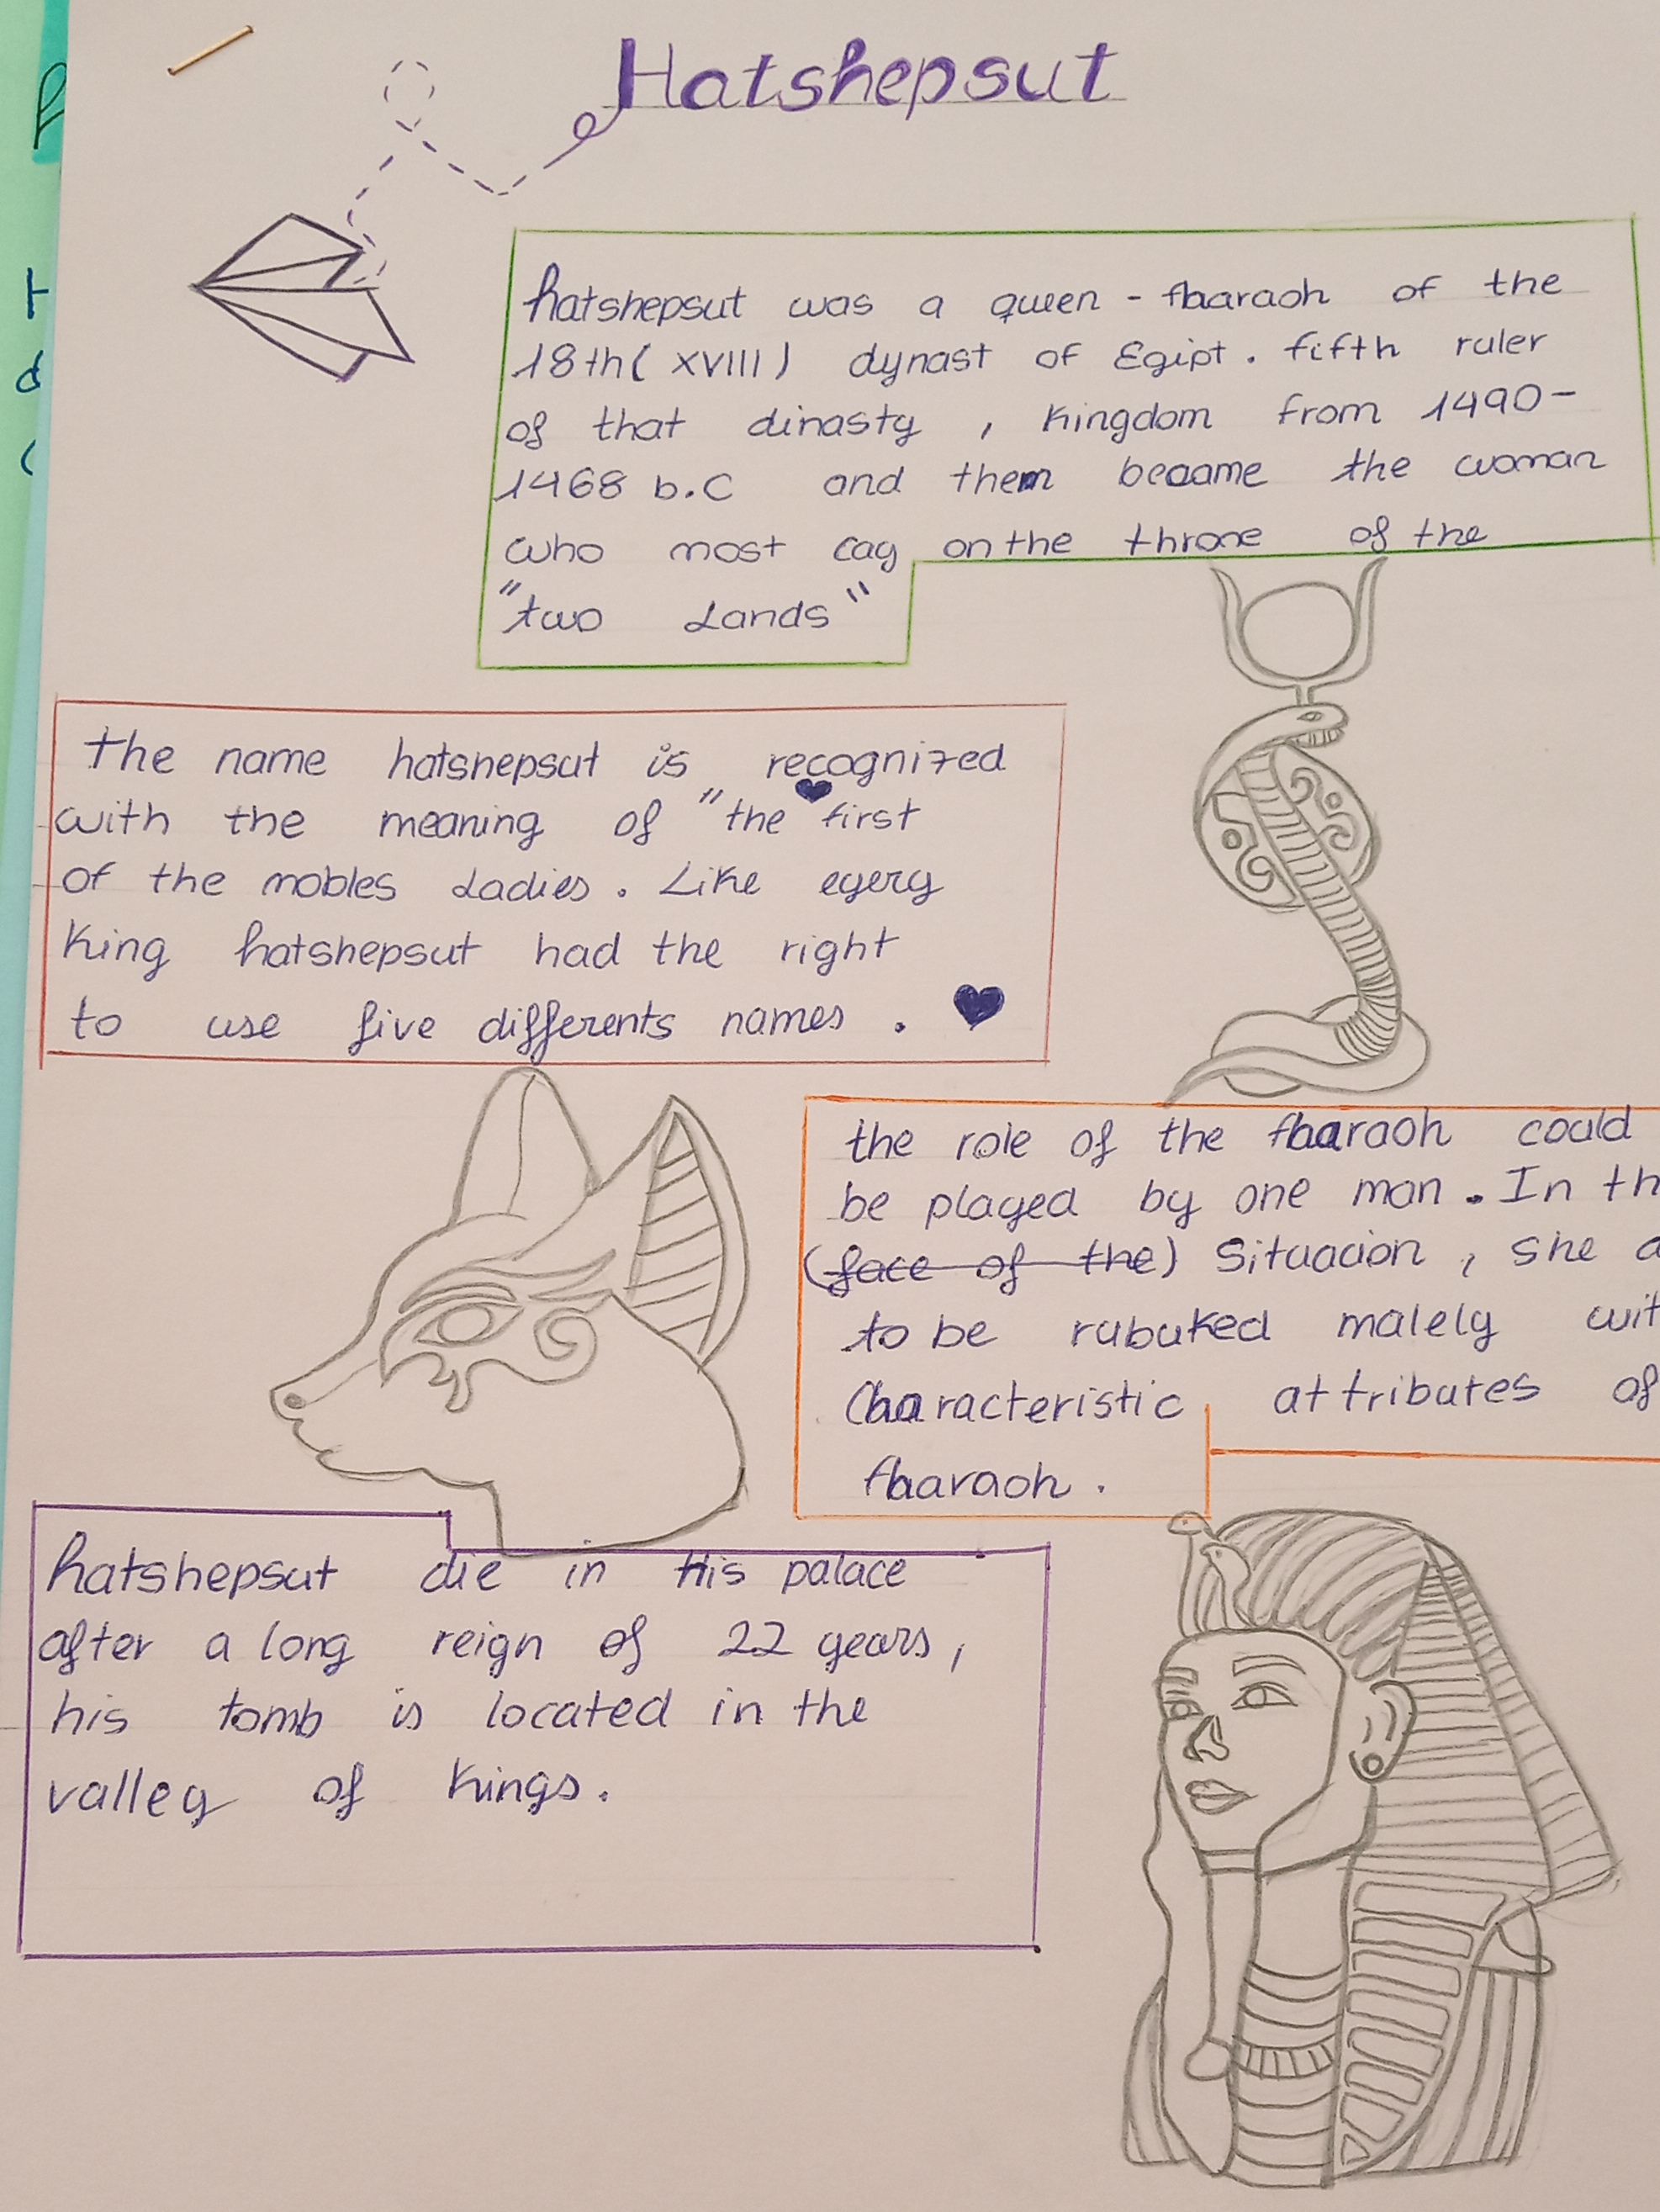 Hatshepsut
hatshepsut was a queen - faaraoh of the
18th ( XVIII ) dynast of Egipt . fifth ruler
of that dinasty , kingdom from 1490-
1468 b.C and them became the woman
who most cay on the throne of the
"two Lands"
the name hatshepsut is recognized
with the meaning of "the first
of the nobles Ladies . Like eyery
king hatshepsut had the right
to use five differents names .
the role of the faaraoh could
be played by one man . In th
(face of the) Situacion , she a
to be rubuked malely wit
Characteristic attributes of
faaraoh .
hatshepsut die in His palace
after a long reign of 22 years,
his tomb is located in the
valley of kings.